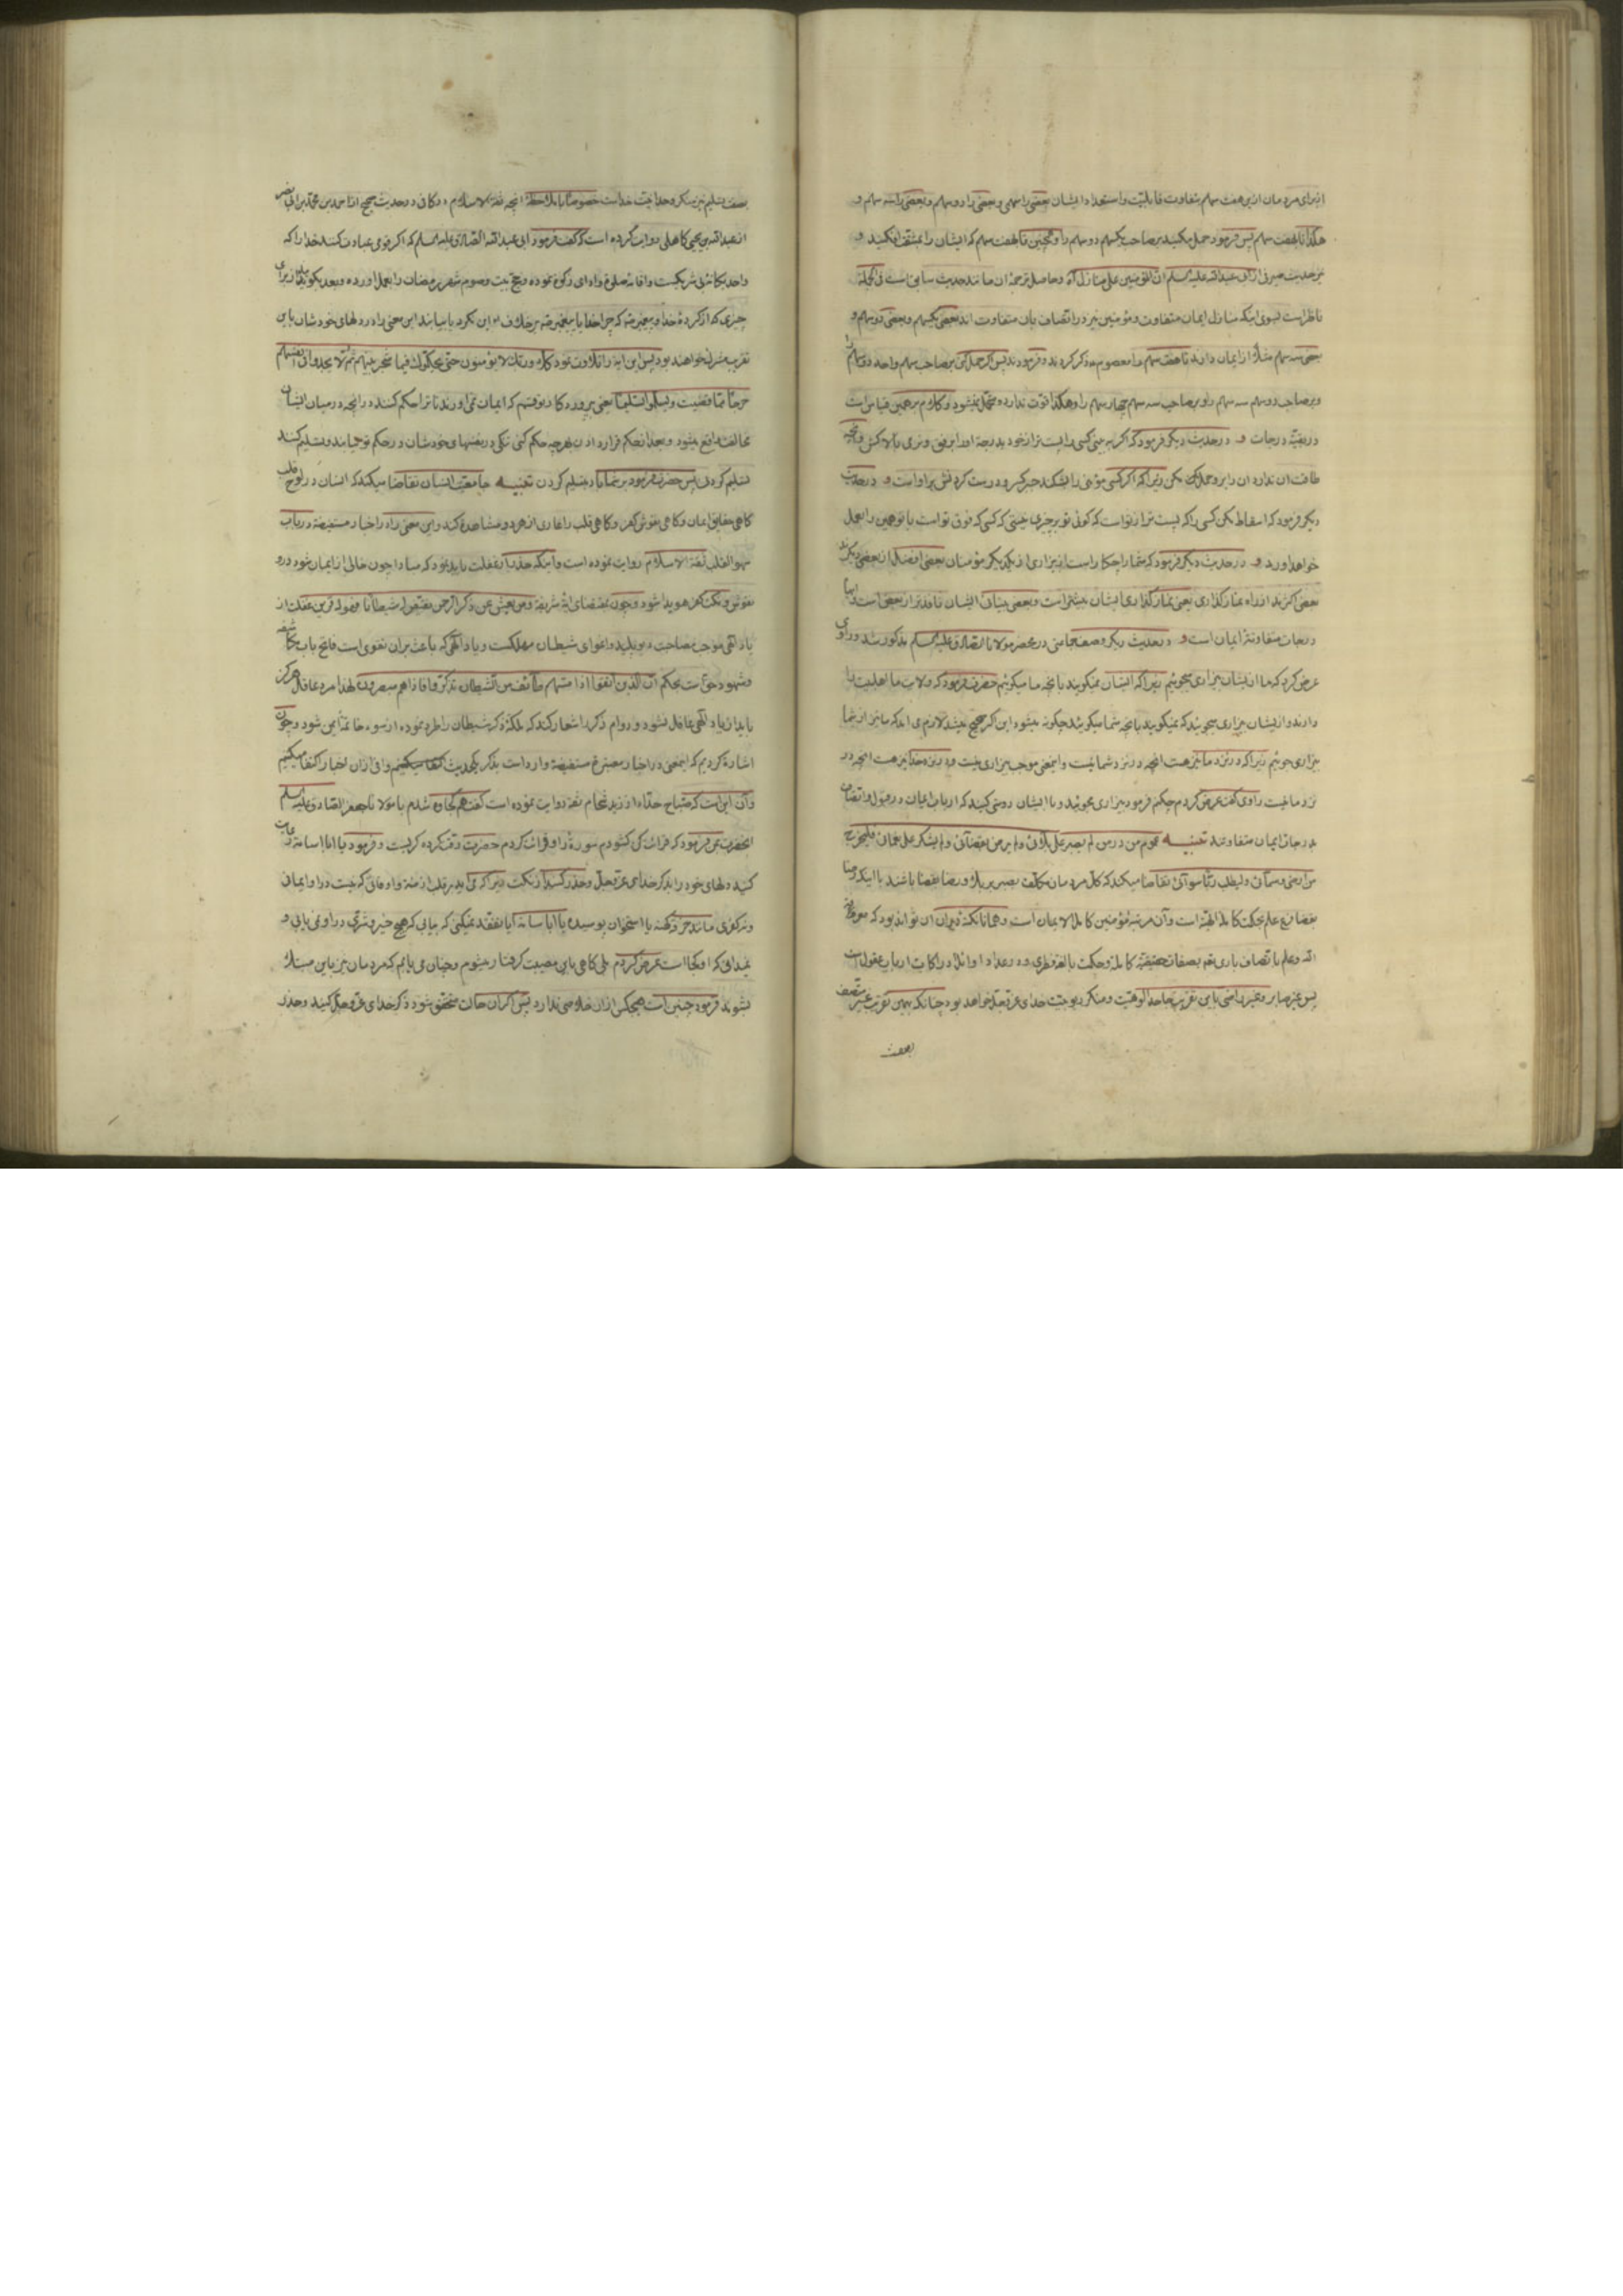 از برای مردمان ازین هفت سهام بتفاوت قابلیت و استعداد ایشان بعضی را سهمی و بعضی را دو سهم و بعضی را سه سهم و
هکذا تا هفت سهم پس فرمود حمل مکنید بر صاحب یکسهم دو سهم را و همچنین تا هفت سهم که ایشان را بمشقت افکنید و
در حدیث صیرفی از ابی عبدالله علیه السلام ان المؤمنین علی منازل آه و حاصل ترجمهٔ ان مانند حدیث سابق است فی الجمله
ناظر است بسوی اینکه منازل ایمان متفاوت و مؤمنین نیز در اتصاف بان متفاوت اند بعضی یکسهم و بعضی دو سهم و
بعضی سه سهم مثلا از ایمان دارند تا هفت سهم را معصوم ع ذکر کردند و فرمودند پس اگر حمل کنی بر صاحب سهم واحد دو سهم را
و بر صاحب دو سهم سه سهم را و بر صاحب سه سهم چهار سهم را و هکذا قوت ندارد و متحمل نمیشود و کلام بر همین قیاس است
در بقیّه درجات و در حدیث دیگر فرمود که اگر به بینی کسی را پست تر از خود بدرجهٔ او را برفق و نرمی بالا کش و آنچه
طاقت ان ندارد ان را بر او حمل مکن زیرا که اگر کسی مؤمنی را بشکند جبر کسر و درست کردنش بر او است و در حدیث
دیگر فرمود که اسقاط مکن کسی را که پست تر از تو است که کوئی تو بر چیزی نیستی که کسی که فوق تو است با تو همین را بعمل
خواهد اورد و در حدیث دیگر فرمود که شما را چکار است از بیزاری از یکدیگر مؤمنان بعضی افضل از بعضی دیگرند
بعضی اکثرند از راه نماز گذاری یعنی نماز گذاری ایشان بیشتر است و بعضی بینائی ایشان نافذتر از بعضی است و اینها
درجات متفاوتهٔ ایمان است و در حدیث دیگر وصف جماعتی در محضر مولانا الصادق علیه السلم مذکور شد و راوی
عرض کرد که ما از ایشان بیزاری میجوئیم زیرا که ایشان نمیکویند بانچه ما میکوئیم حضرت فرمود که ولایت ما اهلبیت را
دارند و از ایشان بیزاری میجوئید که نمیکویند بانچه شما میکوئید چکونه میشود این اگر صحیح باشد لازم می اید که ما نیز از شما
بیزاری جوئیم زیرا که در نزد ما نیز هست انچه در نزد شما نیست و اینمعنی موجب بیزاری نیست و در نزد خدا نیز هست انچه در
نزد ما نیست راوی گفت عرض کردم چکنم فرمود بیزاری مجوئید و با ایشان دوستی کنید که ارباب ایمان در قبول و اتصاف
بدرجات ایمان متفاوتند تنبیه عموم من در من لم یصبر علی بلائی ولم یرض بقضائی ولم یشکر علی نعمائی فلیخرج
من ارضی و سمائی ولیطلب ربّا سوائی تقاضا میکند که کل مردمان مکلف بصبر بر بلا و رضا بقضا باشند با اینکه رضا
بقضا فرع علم بحکمت کاملهٔ الهیّه است و آن مرتبهٔ مؤمنین کامل الایمان است و همانا نکتهٔ در ان ان تواند بود که معرفت
الله و علم باتصاف باری تعم بصفات حقیقیّهٔ کامله و حکمت بالغه فطری و در عداد اوائل ادراکات ارباب عقول است
پس غیر صابر و غیر راضی باین تقریب جاحد الوهیّت و منکر ربوبیّت خدای عز و جل خواهد بود چنانکه بهمین تقریب غیر متصف
بصفت
بصفت تسلیم نیز منکر وحدانیت خداست خصوصا با ملاحظهٔ انچه ثقة الاسلام در کافی در حدیث صحیح از احمد بن محمد بن ابی نصر
از عبدالله بن یحیی کاهلی روایت کرده است که گفت فرمود ابی عبدالله الصادق علیه السلم که اگر قومی عبادت کنند خدا را که
واحد یکانه بی شریکست و اقامهٔ صلوة و ادای زکوة نموده و حج بیت و صوم شهر رمضان را بعمل اورده و بعد بکویند از برای
چیزی که از کردهٔ خدا و پیغمبر ص که چرا خدا یا پیغمبر ص بر خلاف این نکرد یا بیابند این معنی را در دلهای خودشان باین
تقریب مشرک خواهند بود پس این ایه را تلاوت نمود فلا وربّک لا یؤمنون حتی یحکموک فیما شجر بینهم ثم لا یجدوا فی انفسهم
حرجا مما قضیت ویسلموا تسلیما یعنی پروردگار تو قسم که ایمان نمی اورند تا ترا حکم کنند در انچه در میان ایشان
مخالفت واقع میشود و بعد از حکم قرار دادن بهر چه حکم کنی تنکی در نفسهای خودشان در حکم تو نیابند و تسلیم کنند
تسلیم کردنی پس حضرت فرمود بر شما باد بتسلیم کردن تنبیه جامعیّت انسان تقاضا میکند که انسان در لوح قلب
کاهی حقایق ایمان و کاهی نقوش کفر و کاهی قلب را عاری از هر دو مشاهده کند و این معنی را در اخبار مستفیضه در باب
سهو القلب ثقة الاسلام روایت نموده است و اینکه حذر از غفلت باید نمود که مبادا چون خالی از ایمان شود درو
نقوش و نکت کفر هویدا شود و چون بمقتضای ایهٔ شریفهٔ ومن یعش عن ذکر الرحمن نقیّض له شیطانا فهو له قرین غفلت از
یاد الهی موجب مصاحبت دیو پلید و اغوای شیطان مهلکست و یاد الهی که باعث بران تقوی است فاتح باب مکاشفه
و شهود حق است بحکم ان الذین اتقوا اذا مسّهم طائف من الشیطان تذکّروا فاذا هم مبصرون لهذا مرد عاقل هرگز
باید از یاد الهی غافل نشود و دوام ذکر را شعار کند که بملکهٔ ذکر شیطان را طرد نموده از سوء خاتمة ایمن شود و چون
اشاره کردیم که اینمعنی در اخبار معتبرهٔ مستفیضة وارد است بذکر یکحدیث اکتفا میکنیم
وآن این است که صباح حذاء از زید شحام بثقه روایت نموده است گفت هم کجاوه شدم با مولانا جعفر الصادق علیه السلم
انحضرت بمن فرمود که قرائت کن کشودم سورهٔ را و قرائت کردم حضرت رقت کرده گریست و فرمود یا ابا اسامة رعایت
کنید دلهای خود را بذکر خدای عز و جل و حذر کنید از نکت زیرا که می اید بر قلب ازمنة و اوقاتی که نیست در او ایمان
و نه کفری مانند خرقهٔ کهنه یا استخوان پوسیده یا ابا اسامة ایا تفقد نمیکنی که بیابی که هیچ خیر و شرّی در او نمی یابی و
نمیدانی که او کجا است عرض کردم بلی کاهی باین مصیبت کرفتار میشوم و چنان می یابم که مردمان نیز باین مبتلا
بشوند فرمود چنین است هیچکس از ان خلاصی ندارد پس اگر ان حالت متحقق شود ذکر خدای عز و جل کنید و حذر